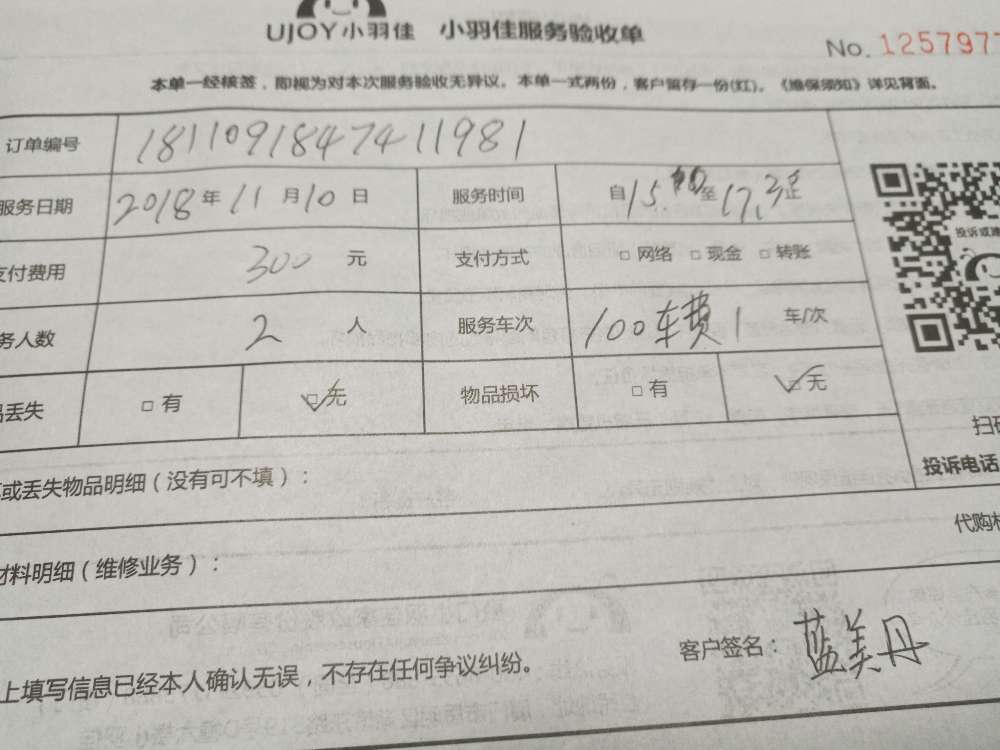 UJOY小羽佳 小羽佳服务验收单
No. 125797
本单一经核签，即视为对本次服务验收无异议。本单一式两份，客户留存一份(红)。《维保须知》详见背面。
订单编号 1811091847411981
服务日期 2018年11月10日 服务时间 自15. 至17.3 止
支付费用 300 元 支付方式 □网络 □现金 □转账
投诉或
务人数 2 人 服务车次 100车费1 车/次
丢失 □有 □无 物品损坏 □有 □无
扫
或丢失物品明细（没有可不填）：
投诉电话
代购
材料明细（维修业务）：
客户签名：蓝美丹
上填写信息已经本人确认无误，不存在任何争议纠纷。